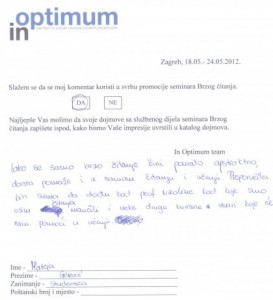 optimum
in
Zagreb, 18.05.- 24.05.2012.
Slažem se da se moj komentar koristi u svrhu promocije seminara Brzog čitanja.
DA
NE
Najljepše Vas molimo da svoje dojmove sa službenog dijela seminara Brzog
čitanja zapišete ispod, kako bismo Vaše impresije uvrstili u katalog dojmova.
In Optimum team
Iako se samo brzo čitanje čini pomalo apstraktno,
dosta pomaže i u samom čitanju i učenju. Preporučila
bih svima da dođu kod prof.
naučili i neke druge korisne stvari koje će
nam pomoći u učenju
Ime - Matea
Prezime -
Zanimanje - Studentica
Poštanski broj i mjesto -